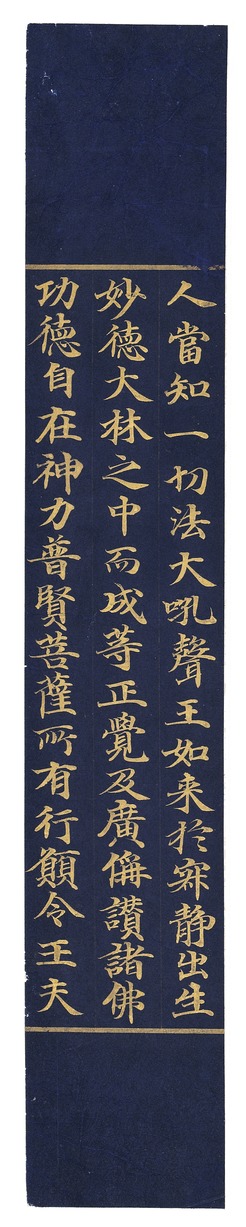 人當知一切法大吼聲王如来於寂静出生
妙德大林之中而成等正覺及廣偁讃諸佛
功德自在神力普賢菩薩所有行願令王夫